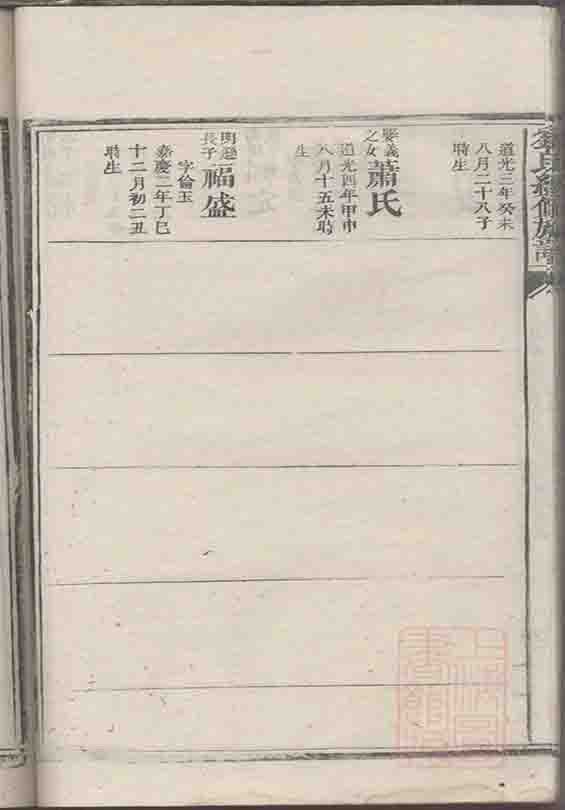 氏續修族譜
道光三年癸未
八月二十八子
時生
娶義
之女
蕭氏
道光四年甲申
八月十五未時
生
明
長子
福盛
字倫玉
嘉慶二年丁巳
十二月初二丑
時生
上海圖
書館藏